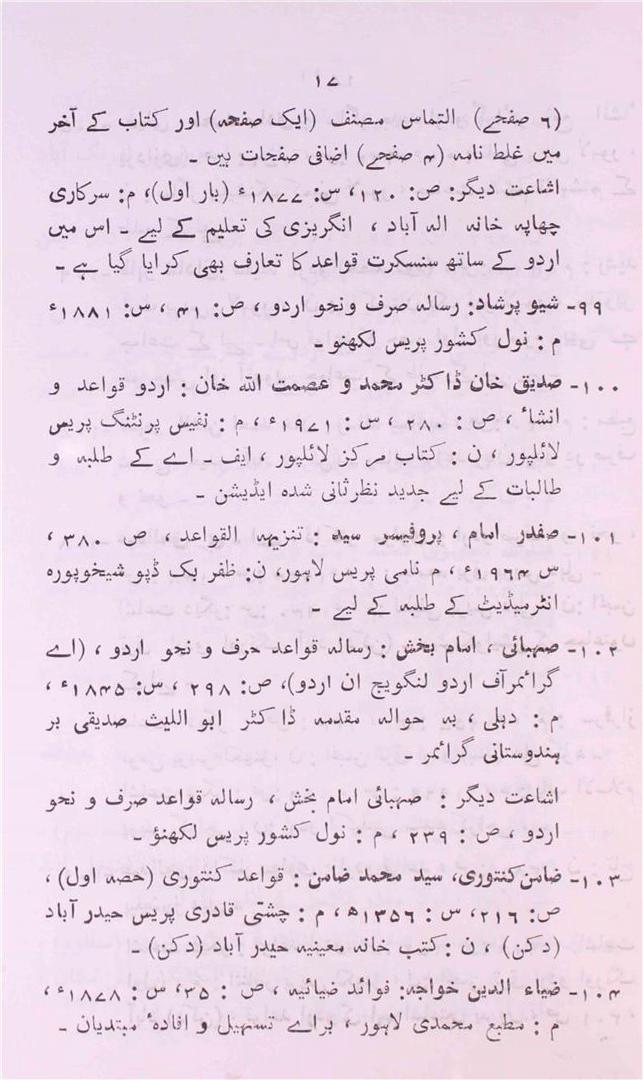 ۱۷
(۶ صفحے) التماس مصنف (ایک صفحہ) اور کتاب کے آخر
میں غلط نامہ (۴ صفحے) اضافی صفحات ہیں ۔
اشاعت دیگر: ص: ۱۲۰، س: ۱۸۷۷ء (بار اول)، م: سرکاری
چھاپہ خانہ الہ آباد ، انگریزی کی تعلیم کے لیے ۔ اس میں
اردو کے ساتھ سنسکرت قواعد کا تعارف بھی کرایا گیا ہے ۔
۹۹- شیو پرشاد: رسالہ صرف ونحو اردو ، ص: ۴۱ ، س: ۱۸۸۱ء
م : نول کشور پریس لکھنو ۔
۱۰۰- صدیق خان ڈاکٹر محمد و عصمت اللہ خان : اردو قواعد و
انشاء ، ص : ۲۸۰ ، س : ۱۹۷۱ء ، م : نفیس پرنٹنگ پریس
لائلپور ، ن : کتاب مرکز لائلپور ، ایف ۔ اے کے طلبہ و
طالبات کے لیے جدید نظرثانی شدہ ایڈیشن ۔
۱۰۱- صفدر امام ، پروفیسر سید : تنزیہہ القواعد ، ص ۳۸۰ ،
س ۱۹۶۴ء ، م نامی پریس لاہور، ن: ظفر بک ڈپو شیخوپورہ
انٹرمیڈیٹ کے طلبہ کے لیے ۔
۱۰۲- صہبائی ، امام بخش : رسالہ قواعد حرف و نحو اردو ، (اے
گرائمرآف اردو لنگویج ان اردو)، ص: ۲۹۸ ، س: ۱۸۴۵ء ،
م : دہلی ، بہ حوالہ مقدمہ ڈاکٹر ابو اللیث صدیقی بر
ہندوستانی گرائمر ۔
اشاعت دیگر : صہبائی امام بخش ، رسالہ قواعد صرف و نحو
اردو ، ص : ۲۳۹ ، م : نول کشور پریس لکھنؤ ۔
۱۰۳- ضامن کنتوری، سید محمد ضامن : قواعد کنتوری (حصہ اول) ،
ص: ۲۱۶، س : ۱۳۵۶ھ ، م : چشتی قادری پریس حیدر آباد
(دکن) ، ن : کتب خانہ معینیہ حیدر آباد (دکن) ۔
۱۰۴- ضیاء الدین خواجہ: فوائد ضیائیہ ، ص : ۳۵، س: ۱۸۷۸ء ،
م : مطبع محمدی لاہور ، براے تسہیل و افادۂ مبتدیان ۔